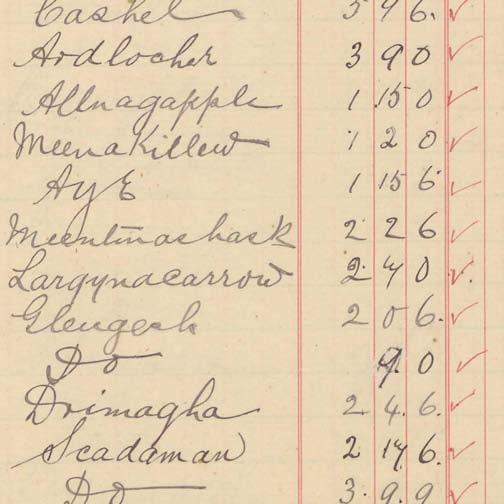 Cashel 3 4 6. ✓
Ardlocher 3 9 0 ✓
Allnagapple 1 .15 0 ✓
Meenakillew 1 2 0 ✓
Aye 1 15 6 ✓
Meentinashask 2 2 6 ✓
Largynacarrow 2. 4 0 ✓
Glengesh 2 0 6. ✓
Do 9. 0 ✓
Drimagha 2 4. 6. ✓
Scadaman 2 14 6. ✓
Do 3. 9. 9 ✓